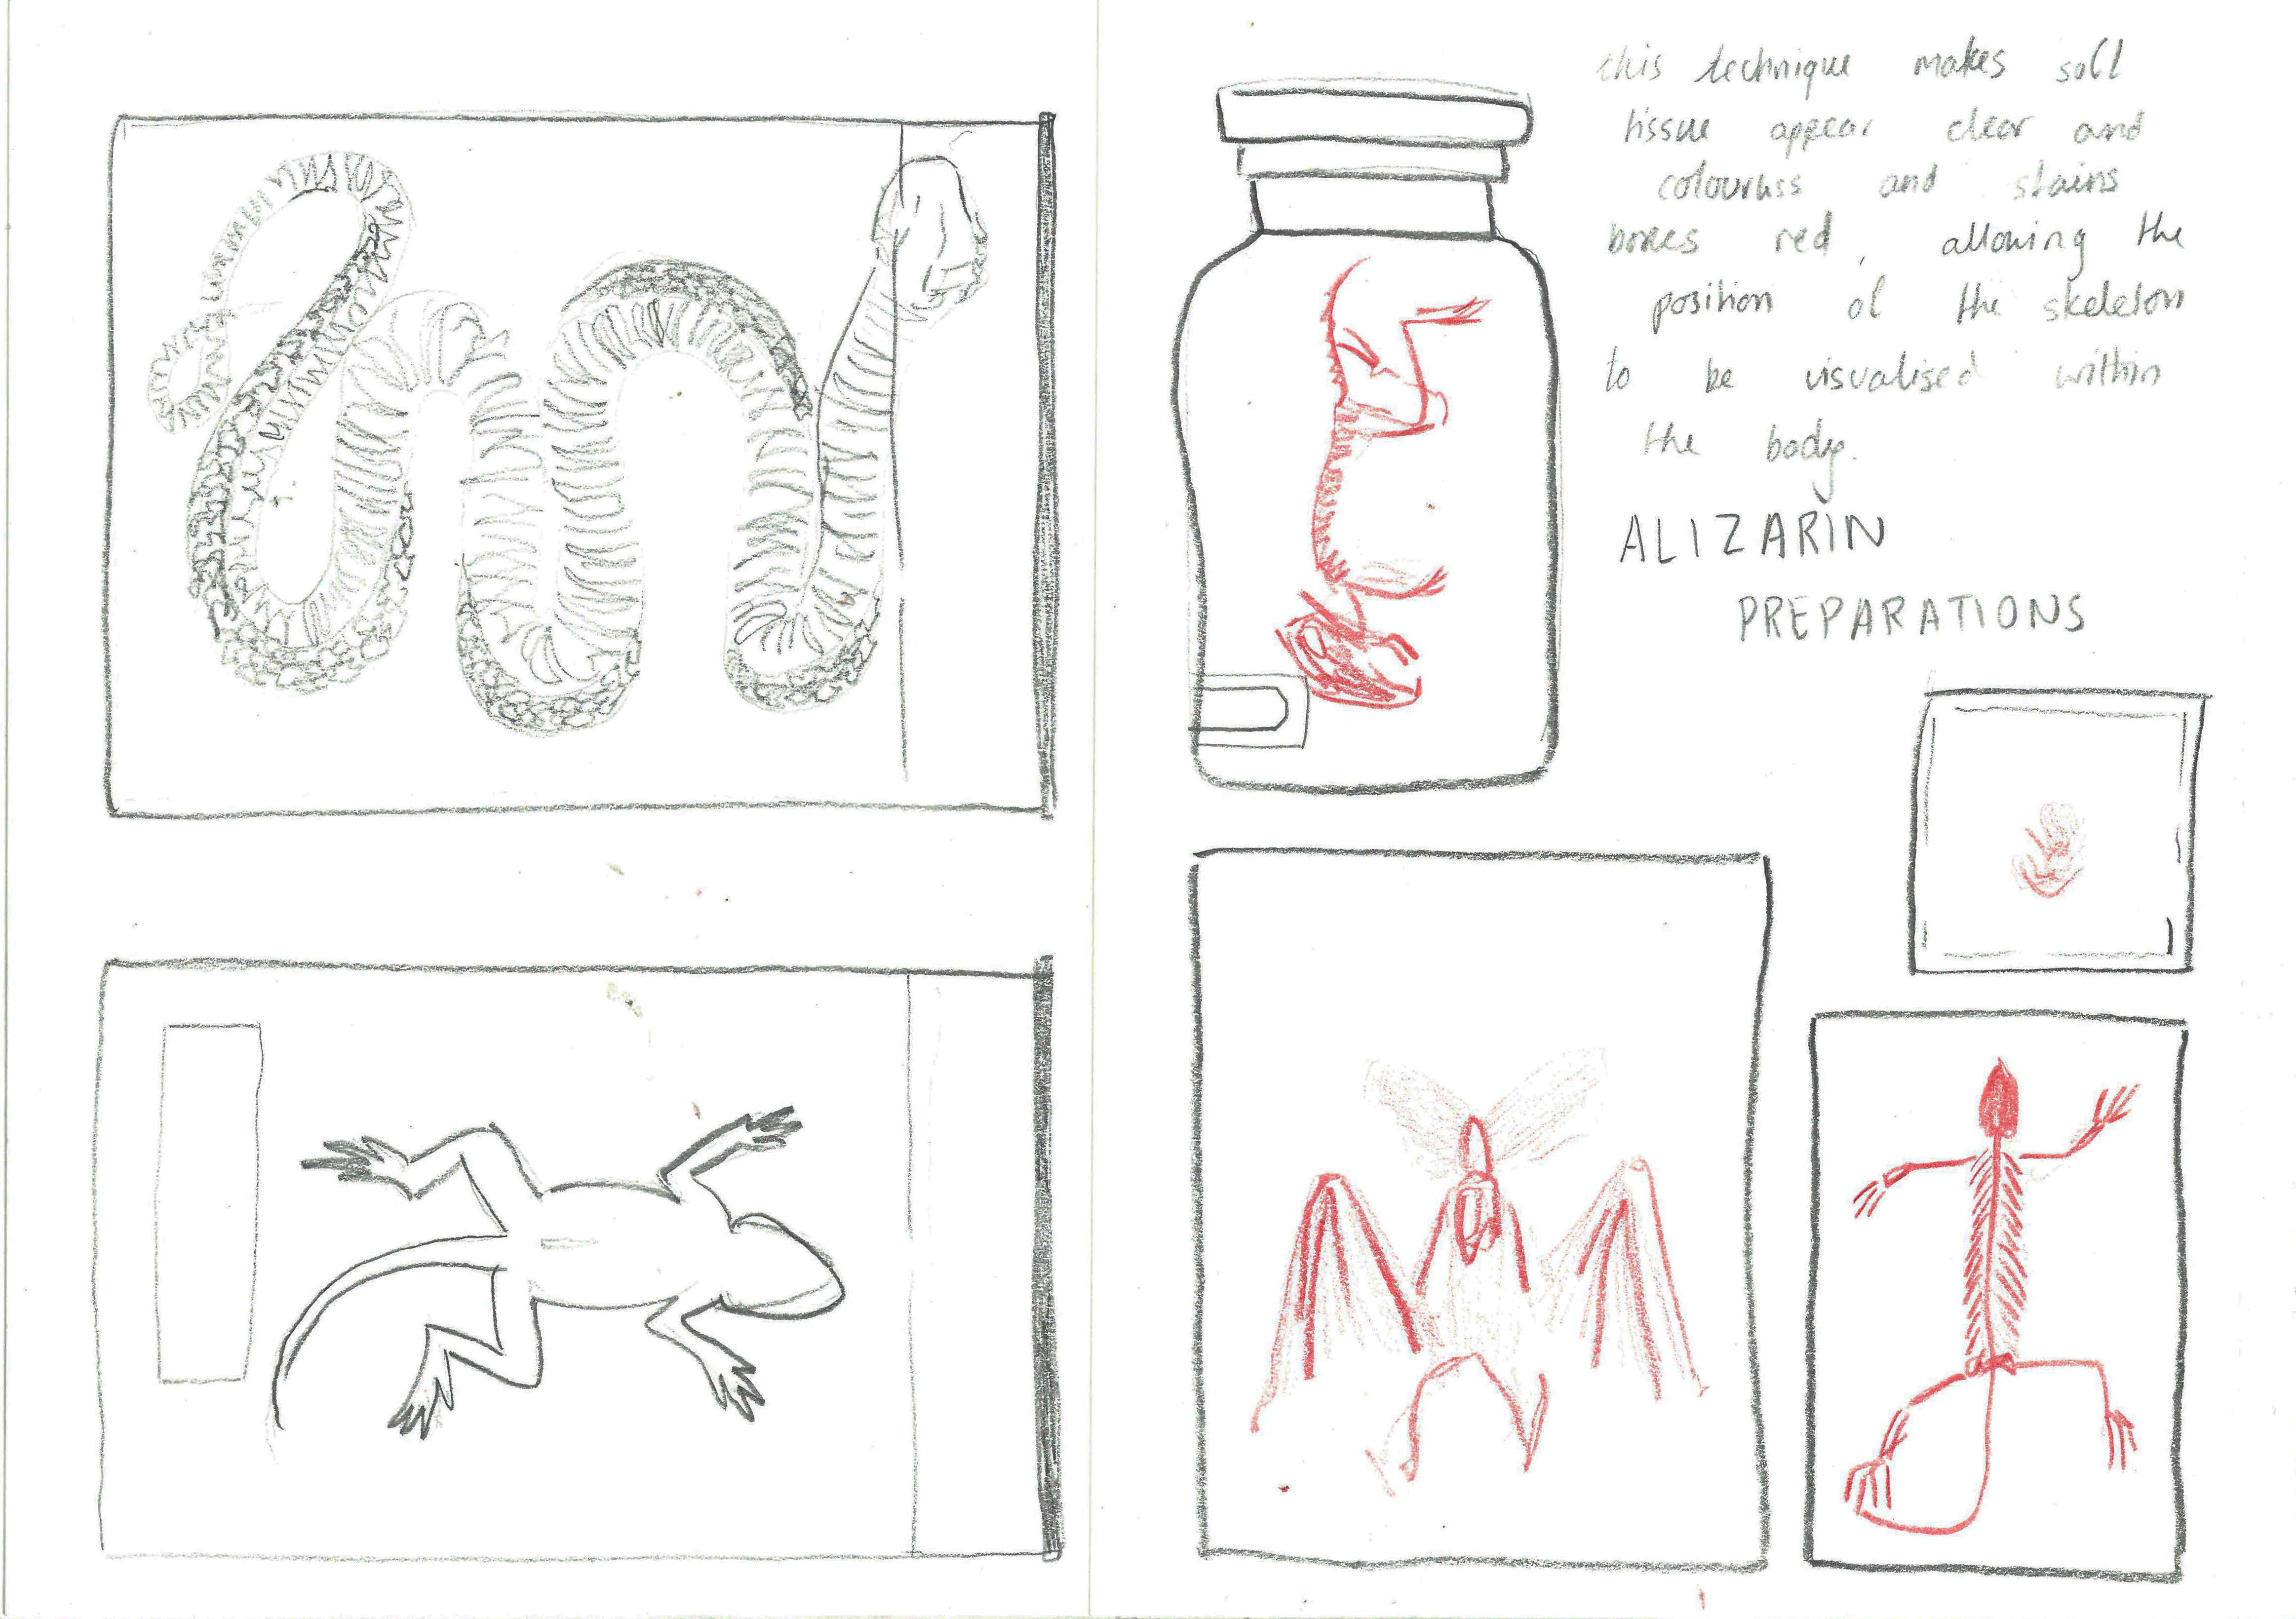 this technique makes soft
tissue appear clear and
colourless and stains
bones red, allowing the
position of the skeleton
to be visualised within
the body.
ALIZARIN
PREPARATIONS